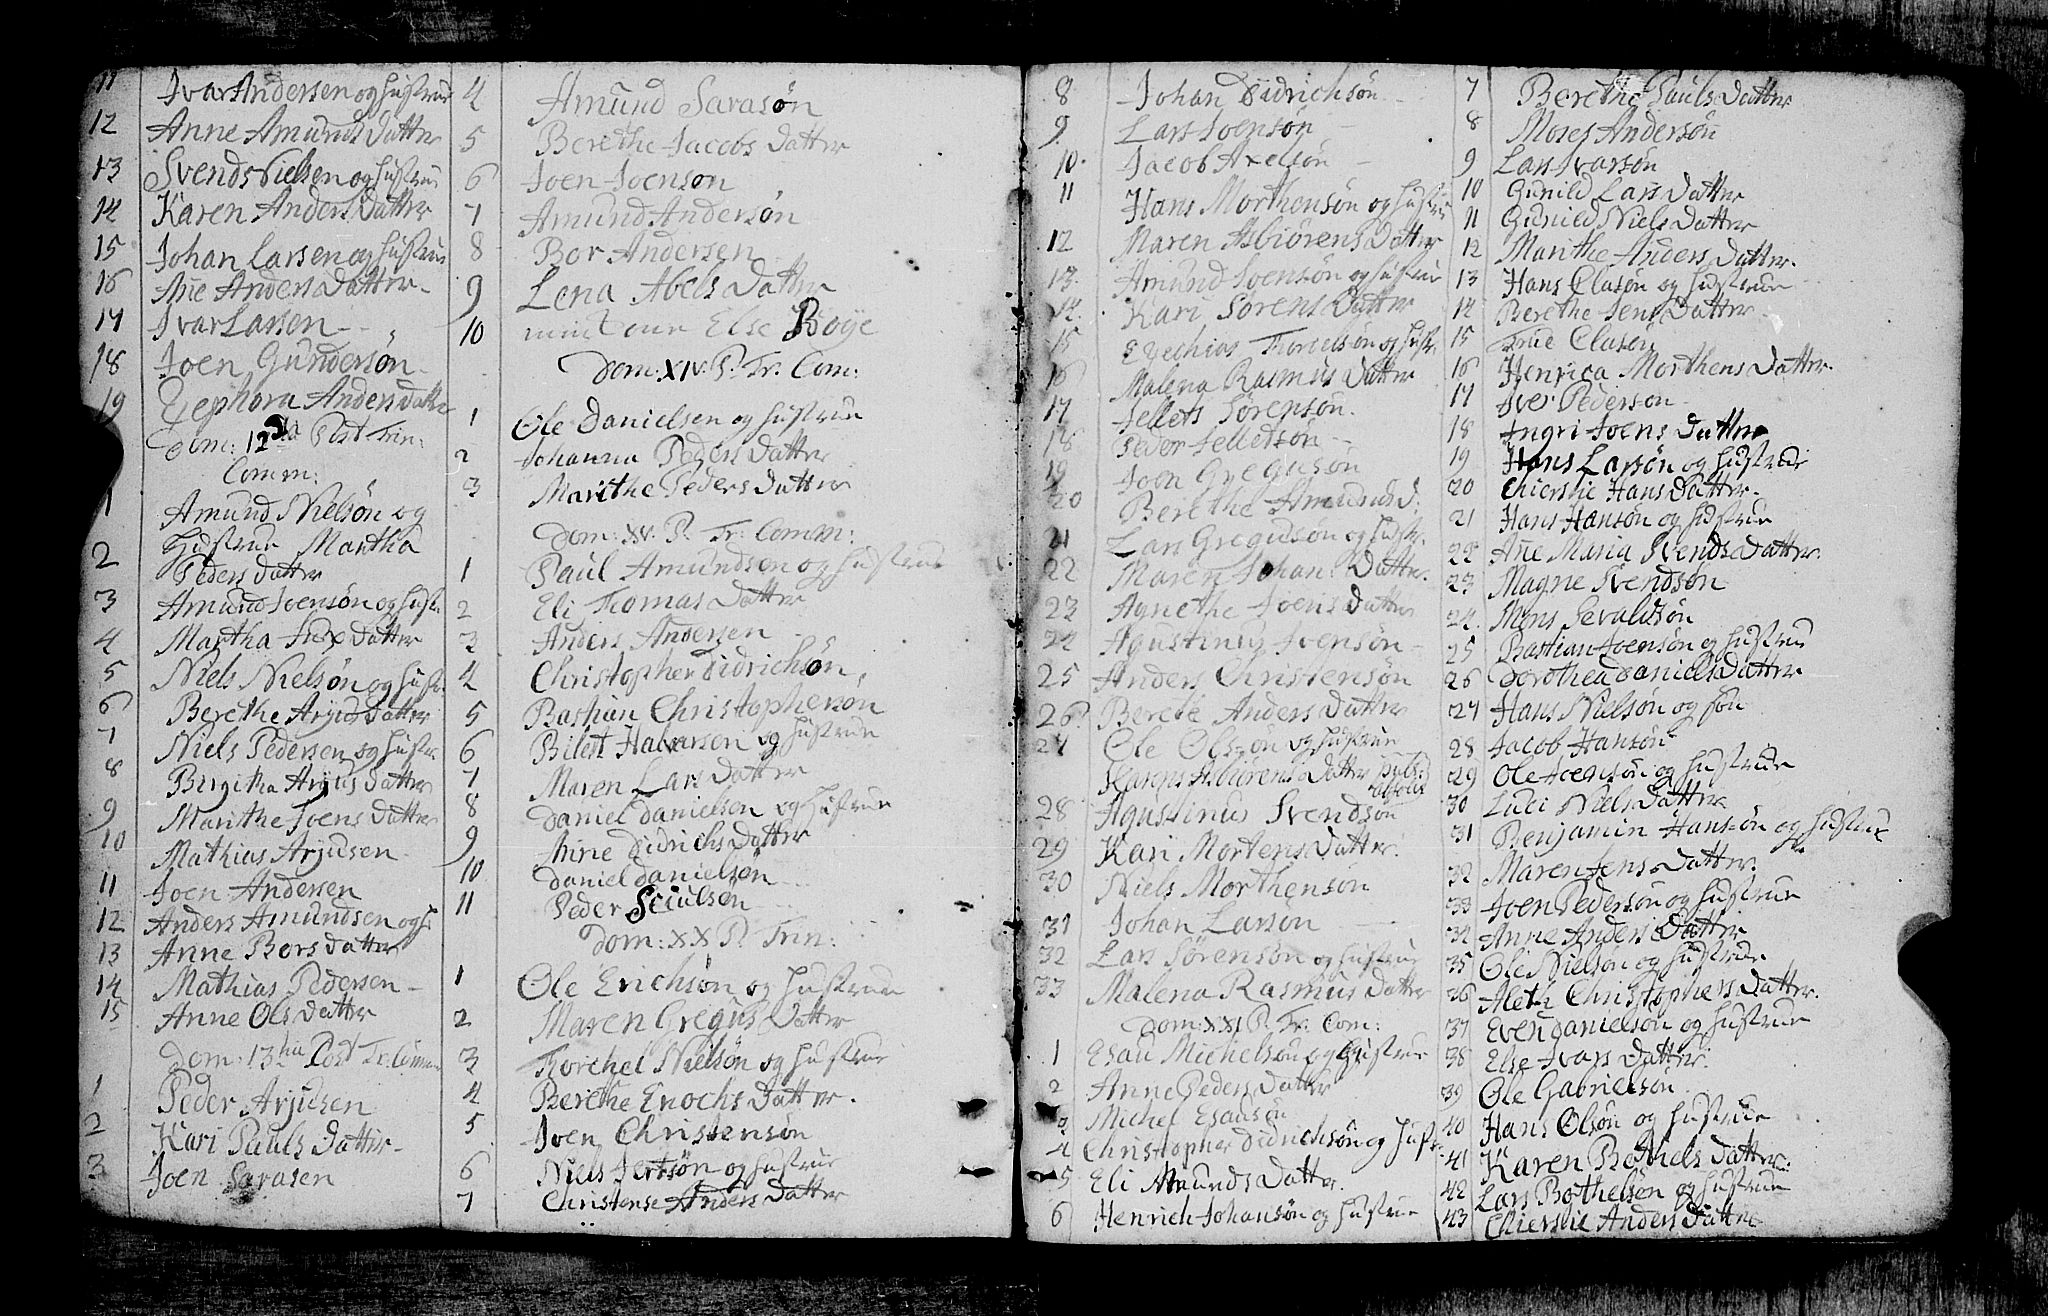 11 Ivar Andersen og hustrue
12 Anne Amunds Datter
13 Svends Nielsen og hustrue
14 Karen Anders Datter
15 Johan Larsen og hustrue
16 Ane Anders Datter
17 Ivar Larsen
18 Joen Gundersøn
19 Zephora Anders datter
Dom: 12da Post Trin:
Comm:
1 Amund Nielsøn og
Hustrue Martha
2 Peders datter
3 Amund Joensøn og hust:
4 Martha datter
5 Niels Nielsøn og hust:
6 Berethe Arjus datter
7 Niels Pedersen og hustr
8 Birgitha Arjus Datter
9 Marithe Joens Datter
10 Mathias Arjusen
11 Joen Andersen
12 Anders Amundsen og h:
13 Anne Bors datter
14 Mathias Pedersen
15 Anne Ols datter
Dom: 13tia Post Tr: Comm
1 Peder Arjusen
2 Kari Pauls Datter
3 Joen Sarasen
4 Amund Sarasøn
5 Berethe Jacobs datter
6 Joen Joenson
7 Amund Andersøn
8 Bor Andersen
9 Lena Abels Datter
10 Else Boÿe
Dom: XIV. P. Tr. Com:
1 Ole Danielsen og hustrue
2 Johanna Peders Datter
3 Marithe Peders datter
Dom: XV. P. Tr: Comm:
1 Paul Amundsen og hustrue
2 Eli Thomas datter
3 Anders Andersen
4 Christopher Didrichsøn
5 Bastian Christophersøn
6 Bilert Halvorsen og hustrue
7 Maren Lars datter
8 Daniel danielsen og hustrue
9 Anne Didrichs Datter
10 Daniel danielsen
11 Peder
Dom: XX P. Trin:
1 Ole Erichsøn og hustrue
2 Maren Gregus Datter
3 Torchel Nielsøn og hustrue
4 Berethe Enochs datter.
5 Joen Christensøn
6 Niels og hustrue
7 Christense Anders datter
8 Johan Didrichsøn
9. Lars Joensøn
10. Jacob Axelsøn
11 Hans Morthensøn og hustrue
12 Maren Asbiørens Datter
13. Amund Joensøn og hustrue
14. Kari Sørens Datter
15 Ezechias og hust:
16 Malena Rasmus datter
17 Jellets Sørensøn.
18 Peder Jelletsøn
19 Joen Gregusøn
20 Berethe Amunds d:
21 Lars Gregusøn og hustr.
22 Maren Johans Datter.
23 Agnethe Joens Datter
24 Agustinus Joensøn
25 Anders Christensøn
26 Berete Anders datter
27 Ole Olsøn og hustrue
Karens Asbiørens datter
28 Agustinus Svendsøn
29 Kari Mortens Datter
30 Niels Morthenson
31 Johan Larson
32 Lars Sørenson og hustrue
33 Malena Rasmus Datter
Dom: XXI P. Tr. Com:
1 Esau Michelsøn og hustrue
2 Anne Peders Datter
3 Michel Esausøn
4 Christopher Didrichsøn og hust
5 Eli Amunds Datter.
6 Henrich Johansøn og hustrue
7 Berethe Pauls datter
8 Moses Andersøn
9 Lars Ivarsøn
10 Gunild Lars Datter
11 Gunild Niels Datter
12 Marithe Anders Datter.
13 Hans Clasøn og hustrue
14 Berethe Jens Datter
15 True Clasøn
16 Henrica Morthens Datter.
17 Iver Pederson
18 Ingri Joens Datter
19 Hans Larsøn og hustrue
20 Chierstie Hans Datter.
21 Hans Hansøn og hustrue
22 Ane Maria Svends Datter.
23 Magne Svendsøn
24. Mons Sevaldsøn
25 Bastian Joensøn og hustrue
26 Dorothea Daniels Datter
27 Hans Nielsøn og søn
28 Jacob Hansøn
29 Ole Joensøn og hustrue
30 Luci Niels Datter
31 Benjamin Hansøn og hustrue
32 Maren Jens Datter.
33 Joen Pedersøn og hustrue
34 Anne Anders Datter
35 Ole Nielson og hustrue
36 Aleth Christophers Datter.
37 Even danielsøn og hustrue
38 Else Ivars Datter
39 Ole Gabrielsøn
40 Hans Olsøn og hustrue
41 Karen Bothels datter:
42 Lars Bothelsen og hustrue
43 Chierstie Anders Datter